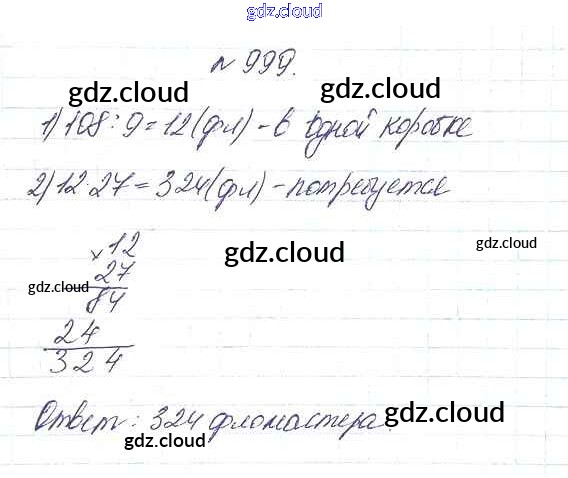 gdz.cloud
№ 999.
gdz.cloud gdz.cloud
1) 108 : 9 = 12 (фл) - в одной коробке
2) 12 · 27 = 324 (фл) - потребуется
× 12
27
84
24
324
gdz.cloud gdz.cloud gdz.cloud
Ответ: 324 фломастера.
gdz.cloud gdz.cloud